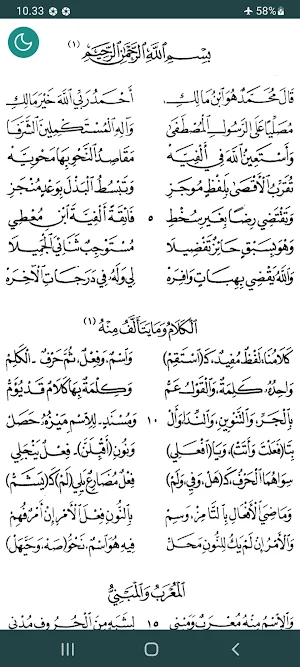 10.33
58%
بِسْمِ اللَّهِ الرَّحْمَنِ الرَّحِيمِ (١)
قَالَ مُحَمَّدٌ هُوَ ابْنُ مَالِكِ أَحْمَدُ رَبِّي اللَّهَ خَيْرَ مَالِكِ
مُصَلِّيًا عَلَى الرَّسُولِ الْمُصْطَفَى وَآلِهِ الْمُسْتَكْمِلِينَ الشَّرَفَا
وَأَسْتَعِينُ اللَّهَ فِي أَلْفِيَّهْ مَقَاصِدُ النَّحْوِ بِهَا مَحْوِيَّهْ
تُقَرِّبُ الْأَقْصَى بِلَفْظٍ مُوجَزِ وَتَبْسُطُ الْبَذْلَ بِوَعْدٍ مُنْجَزِ
وَتَقْتَضِي رِضًا بِغَيْرِ سُخْطِ ٥ فَائِقَةً أَلْفِيَّةَ ابْنِ مُعْطِي
وَهُوَ بِسَبْقٍ حَائِزٌ تَفْضِيلَا مُسْتَوْجِبٌ ثَنَائِيَ الْجَمِيلَا
وَاللَّهُ يَقْضِي بِهِبَاتٍ وَافِرَهْ لِي وَلَهُ فِي دَرَجَاتِ الْآخِرَهْ
الْكَلَامُ وَمَا يَتَأَلَّفُ مِنْهُ (١)
كَلَامُنَا لَفْظٌ مُفِيدٌ، كَـ(اسْتَقِمْ) وَاسْمٌ، وَفِعْلٌ، ثُمَّ حَرْفٌ ـ الْكَلِمْ
وَاحِدُهُ كَلِمَةٌ، وَالْقَوْلُ عَمْ وَكِلْمَةٌ بِهَا كَلَامٌ قَدْ يُؤَمْ
بِالْجَرِّ، وَالتَّنْوِينِ، وَالنِّدَا، وَأَلْ ١٠ وَمُسْنَدٍ ـ لِلِاسْمِ مَيْزُهُ حَصَلْ
بِتَا (فَعَلْتَ وَأَتَتْ)، وَيَا (افْعَلِي) وَنُونِ (أَقْبِلَنَّ) ـ فِعْلٌ يَنْجَلِي
سِوَاهُمَا الْحَرْفُ كَـ(هَلْ، وَفِي، وَلَمْ) فِعْلٌ مُضَارِعٌ يَلِي (لَمْ) كَـ(يَشَمْ)
وَمَاضِيَ الْأَفْعَالِ بِالتَّا مِزْ، وَسِمْ بِالنُّونِ فِعْلَ الْأَمْرِ إِنْ أَمْرٌ فُهِمْ
وَالْأَمْرُ إِنْ لَمْ يَكُ لِلنُّونِ مَحَلْ فِيهِ هُوَ اسْمٌ، نَحْوُ (صَهْ، وَحَيَّهَلْ)
الْمُعْرَبُ وَالْمَبْنِيُّ
وَالِاسْمُ مِنْهُ مُعْرَبٌ وَمَبْنِي ١٥ لِشَبَهٍ مِنَ الْحُرُوفِ مُدْنِي